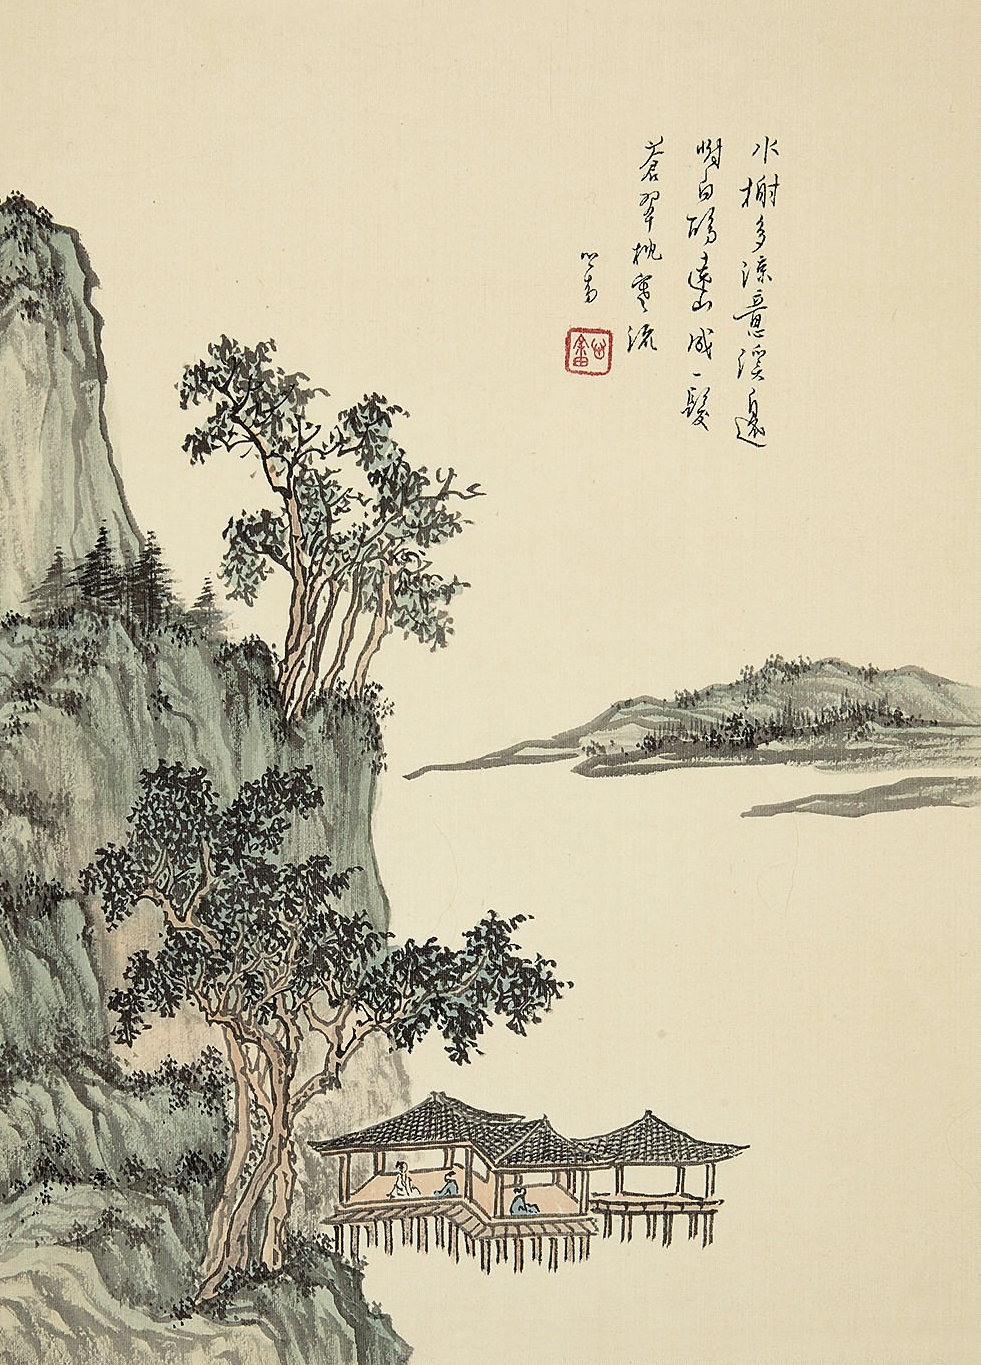 水榭多涼意溪邊
對白鷗遠山成一髮
蒼翠枕寒流
心畬
心畬